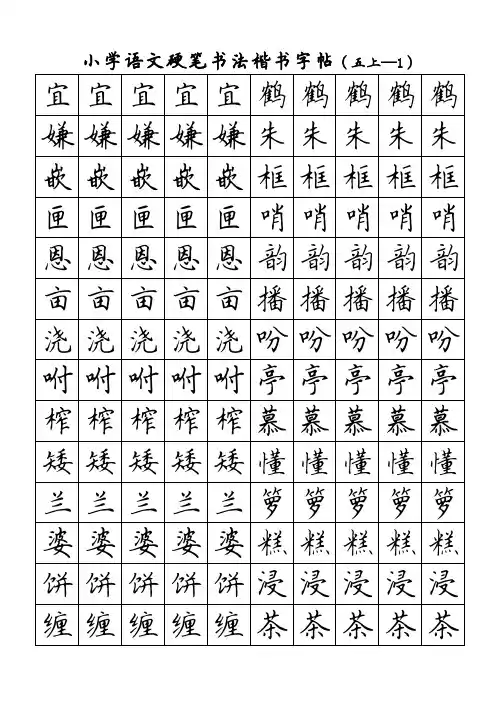 小学语文硬笔书法楷书字帖（五上—1）
宜宜宜宜宜鹤鹤鹤鹤鹤
嫌嫌嫌嫌嫌朱朱朱朱朱
嵌嵌嵌嵌嵌框框框框框
匣匣匣匣匣哨哨哨哨哨
恩恩恩恩恩韵韵韵韵韵
亩亩亩亩亩播播播播播
浇浇浇浇浇吩吩吩吩吩
咐咐咐咐咐亭亭亭亭亭
榨榨榨榨榨慕慕慕慕慕
矮矮矮矮矮懂懂懂懂懂
兰兰兰兰兰箩箩箩箩箩
婆婆婆婆婆糕糕糕糕糕
饼饼饼饼饼浸浸浸浸浸
缠缠缠缠缠茶茶茶茶茶